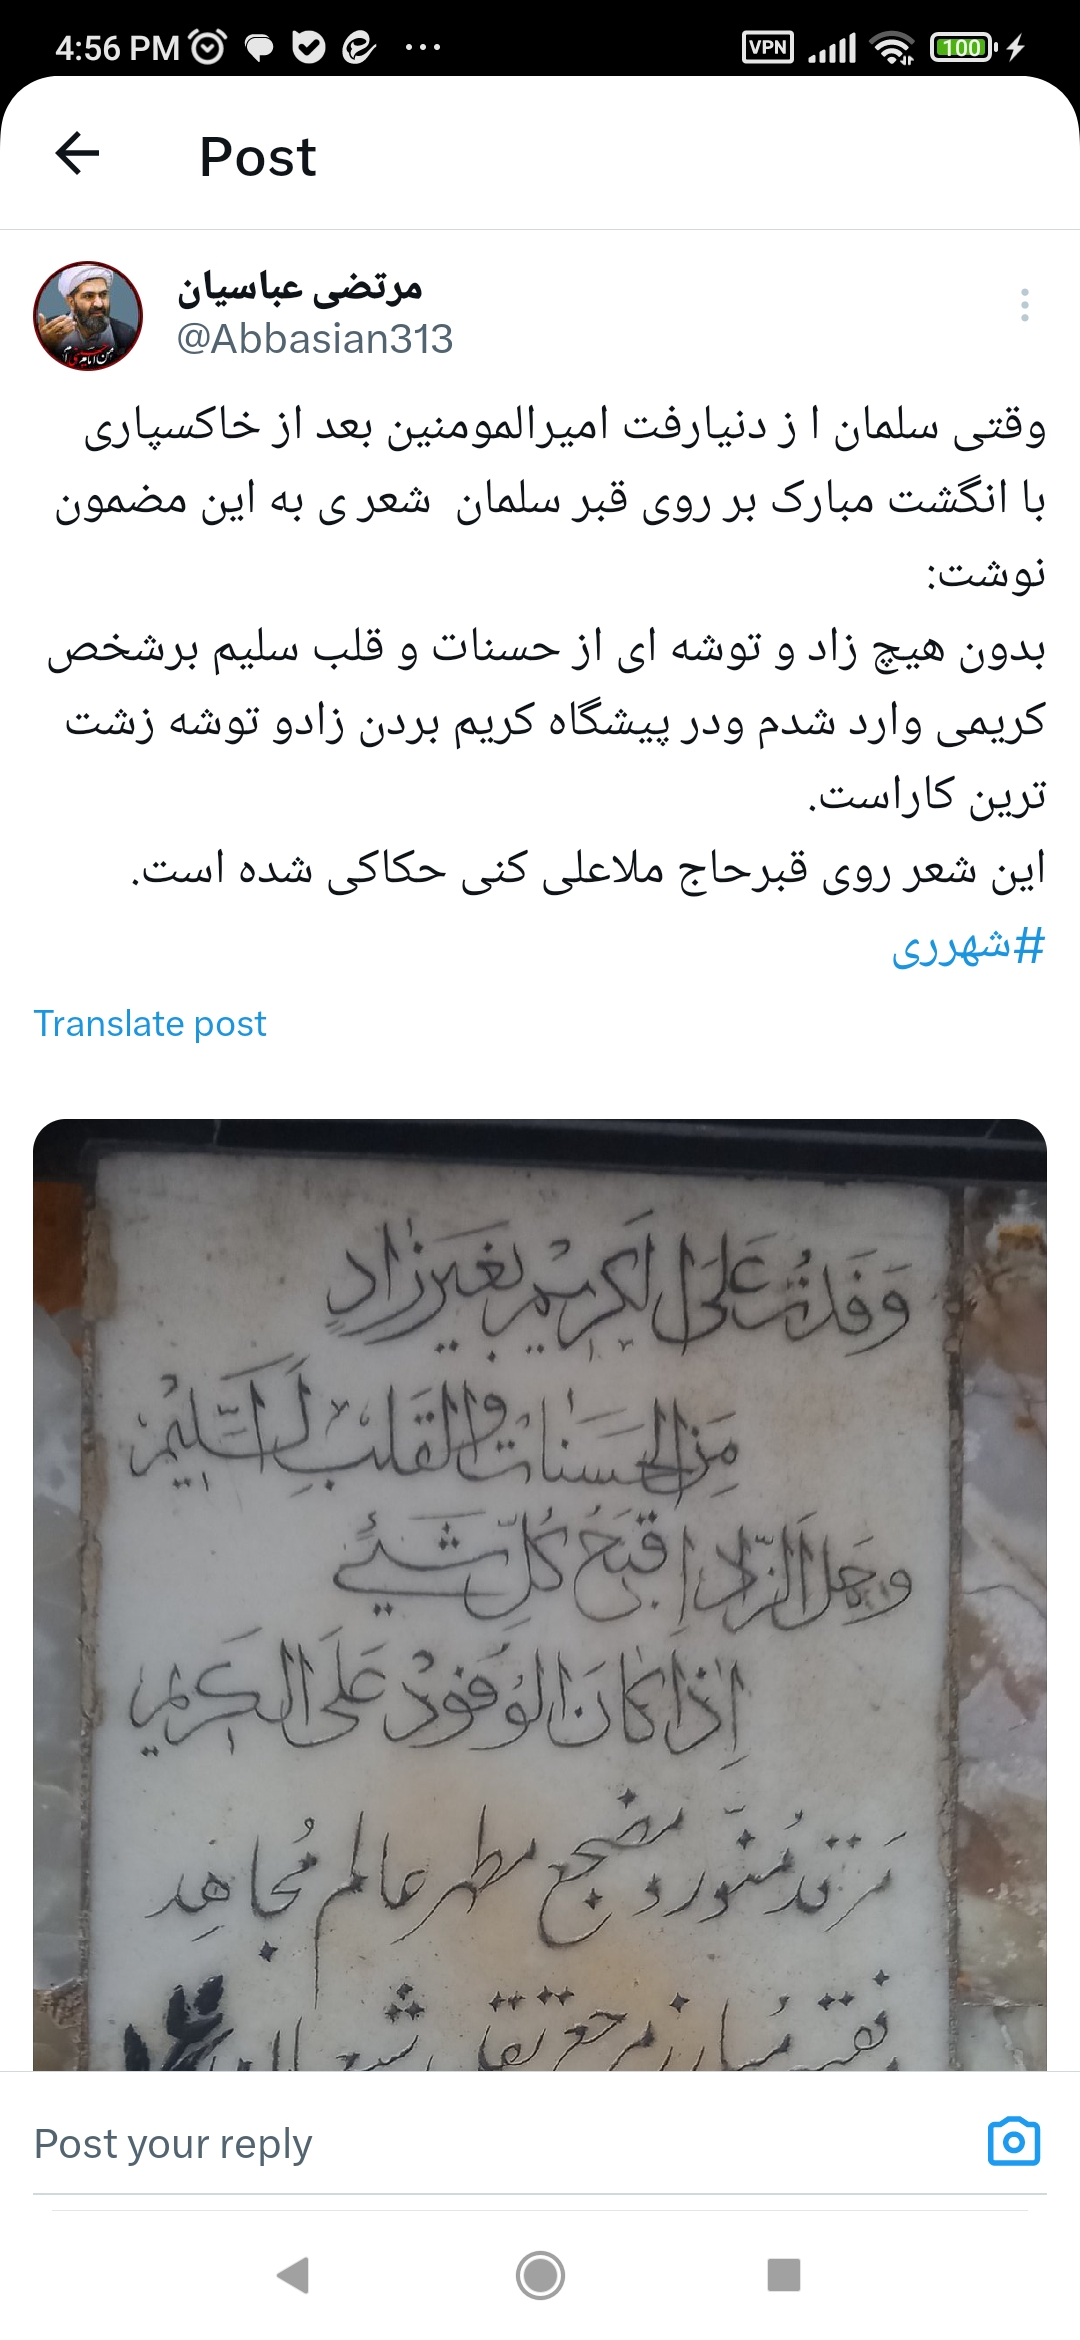 4:56 PM
VPN
100
Post
مرتضی عباسیان
@Abbasian313
وقتی سلمان ا ز دنیارفت امیرالمومنین بعد از خاکسپاری
با انگشت مبارک بر روی قبر سلمان شعر ی به این مضمون
نوشت:
بدون هیچ زاد و توشه ای از حسنات و قلب سلیم برشخص
کریمی وارد شدم ودر پیشگاه کریم بردن زادو توشه زشت
ترین کاراست.
این شعر روی قبرحاج ملاعلی کنی حکاکی شده است.
#شهرری
Translate post
وَفَدْتُ عَلَی الکَریْمِ بِغَیرِ زادٍ
مِنَ الحَسَناتِ وَالقَلْبِ السَّلیْمِ
وحَمل الزّادِ اَقبَحُ کُلِّ شَیْئٍ
اِذا کانَ الوُفُوْدُ عَلَی الکَریم
مَرقد مُنوّر و مضجع مطهر عالم مُجاهِد
فقیه مُبارز مرجع تقلید شیعیان
Post your reply